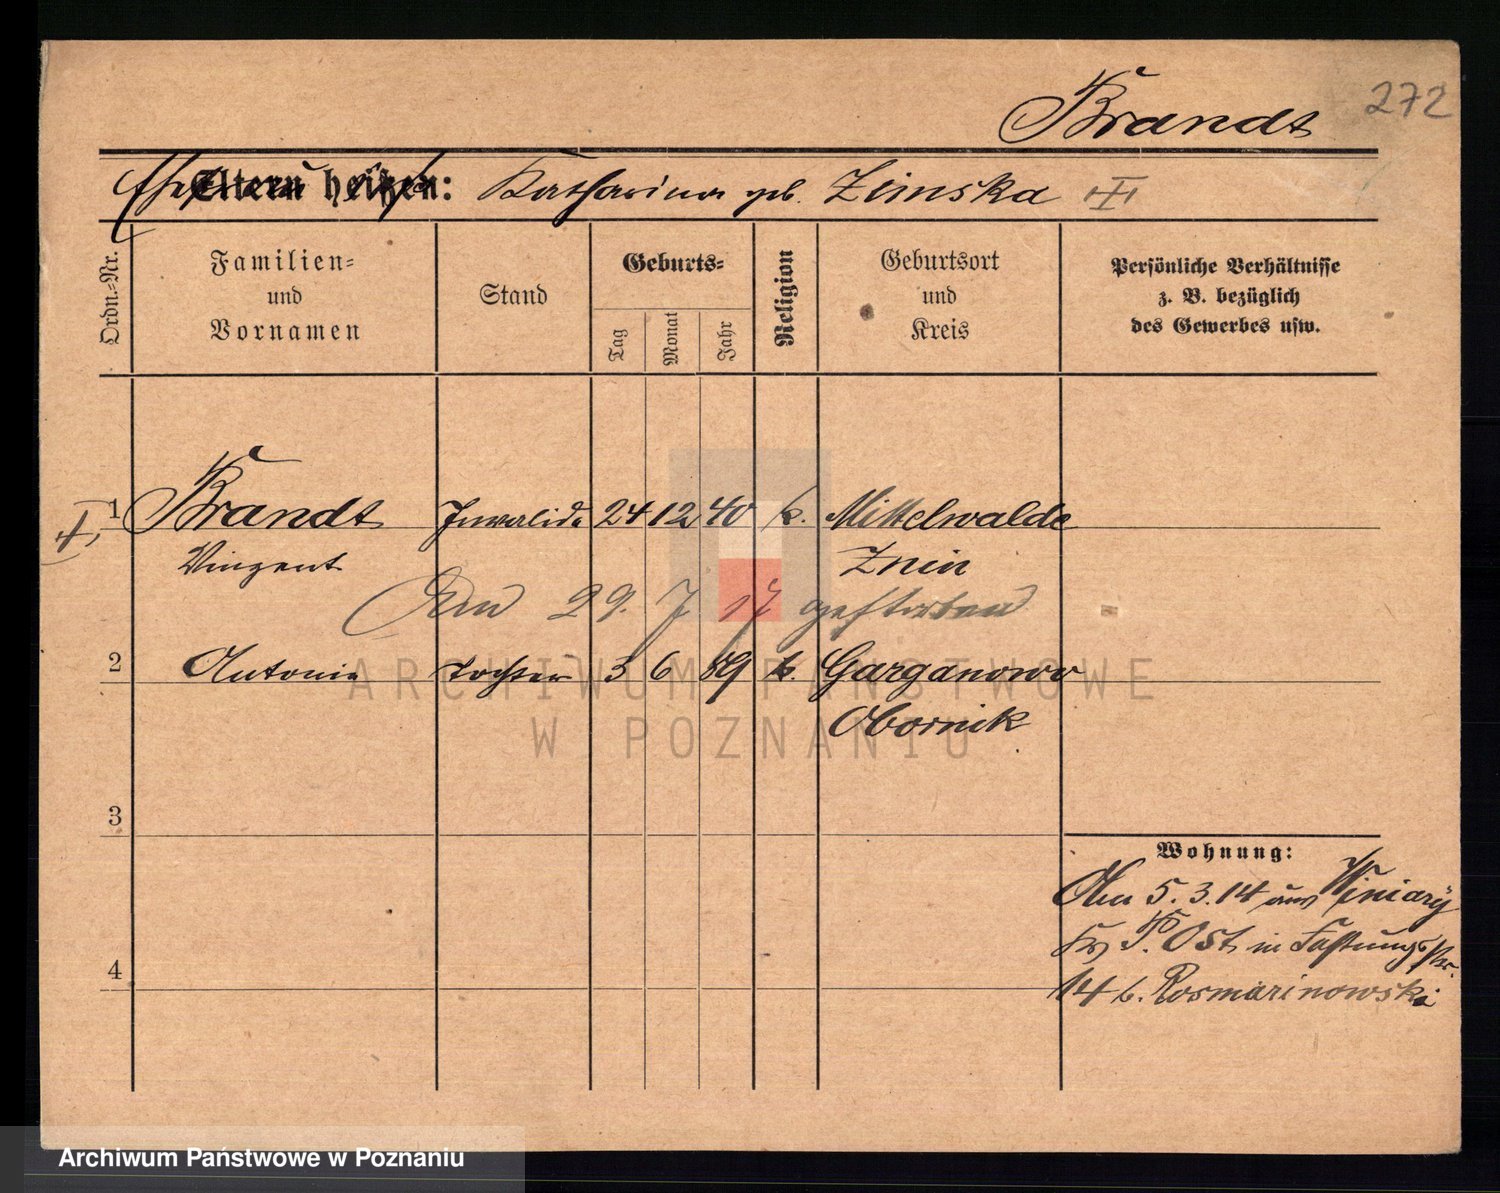 Brandt 272
Eltern heißen: Katharina geb. Zimska
Ordn.-Nr.
Familien-
und
Vornamen
Stand
Geburts-
Tag
Monat
Jahr
Religion
Geburtsort
und
Kreis
Persönliche Verhältnisse
z. B. bezüglich
des Gewerbes usw.
1 Brandt Invalide 24 12 40 k. Mittelwalde
Vinzent Znin
Am 29. 7 17 gestorben
2 Antonie Tochter 3 6 89 k. Garganowo
Obornik
3
4
Wohnung:
Am 5.3.14 aus Winiary
P. Ost in Festungsstr.
14 b. Rosmarinowski
ARCHIWUM PAŃSTWOWE
W POZNANIU
Archiwum Państwowe w Poznaniu